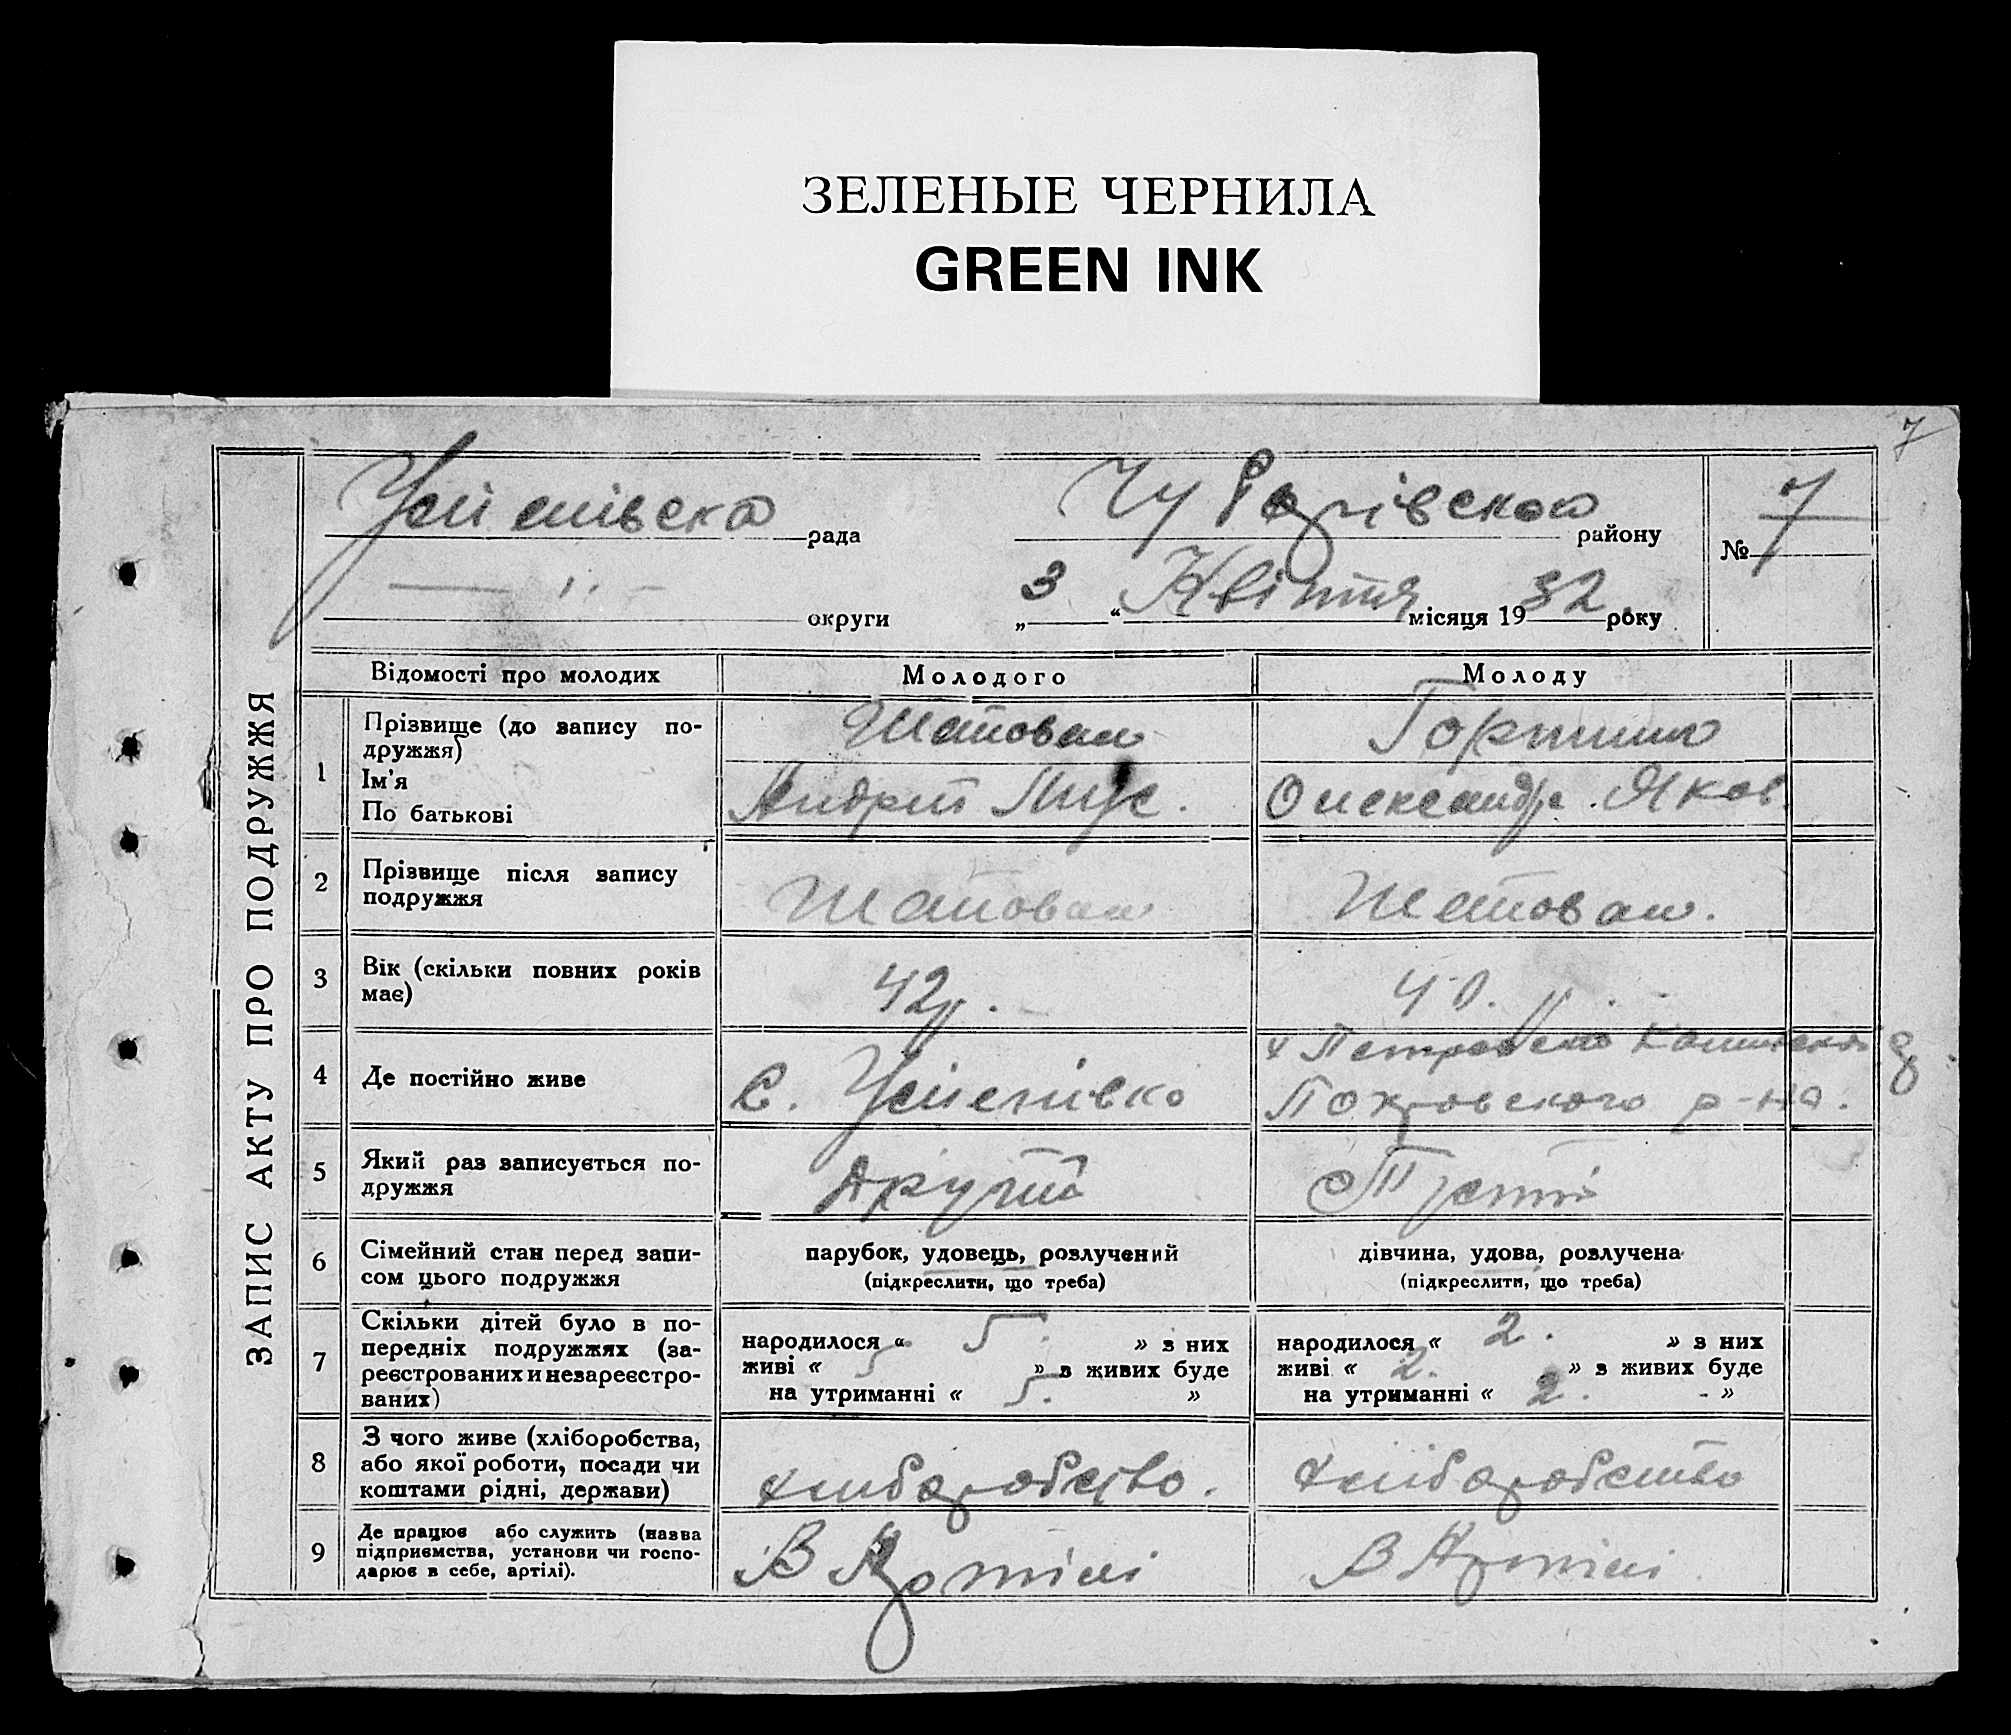 ЗЕЛЕНЫЕ ЧЕРНИЛА
GREEN INK
7
ЗАПИС АКТУ ПРО ПОДРУЖЖЯ
Успенівська рада Чубарівского району № 7
округи „3“ Квітня місяця 1932 року
Відомості про молодих Молодого Молоду
1 Прізвище (до запису по-
дружжя) Шаповал
Ім'я Андрій Олександра Яков.
По батькові
2 Прізвище після запису
подружжя Шаповал Шаповал.
3 Вік (скільки повних років
має) 42р. 40.
4 Де постійно живе С. Успенівка Покровского р-на.
5 Який раз записується по-
дружжя Другий Третій
6 Сімейний стан перед запи-
сом цього подружжя
парубок, удовець, розлучений
(підкреслити, що треба)
дівчина, удова, розлучена
(підкреслити, що треба)
7 Скільки дітей було в по-
передніх подружжях (за-
реєстрованих и незареєстро-
ваних)
народилося “ 5. » з них
живі “ 5 » з живих буде
на утриманні “ 5. »
народилося “ 2. » з них
живі “ 2. » з живих буде
на утриманні “ 2. »
8 З чого живе (хліборобства,
або якої роботи, посади чи
коштами рідні, держави)
хліборобство. хліборобство
9 Де працює або служить (назва
підприємства, установи чи госпо-
дарює в себе, артілі).
В Артілі В Артілі